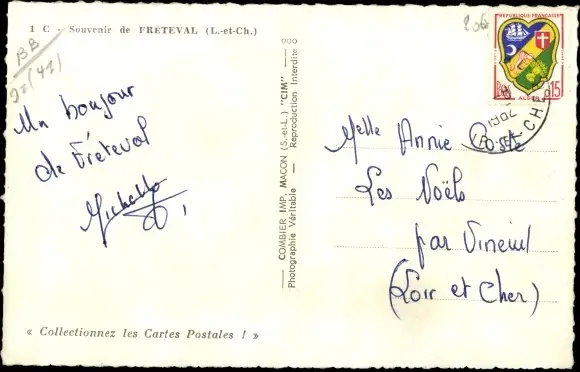 1 C - Souvenir de FRÉTEVAL (L.-et-Ch.)
BB
(41)
Un bonjour
de Fréteval
« Collectionnez les Cartes Postales ! »
COMBIER IMP. MACON (S.-et-L.) "CIM"
Photographie Véritable - Reproduction Interdite
20c
REPUBLIQUE FRANÇAISE
ALGER
0,15
Melle Annie Coste
Les Noëls
par Vineuil
(Loir et Cher)